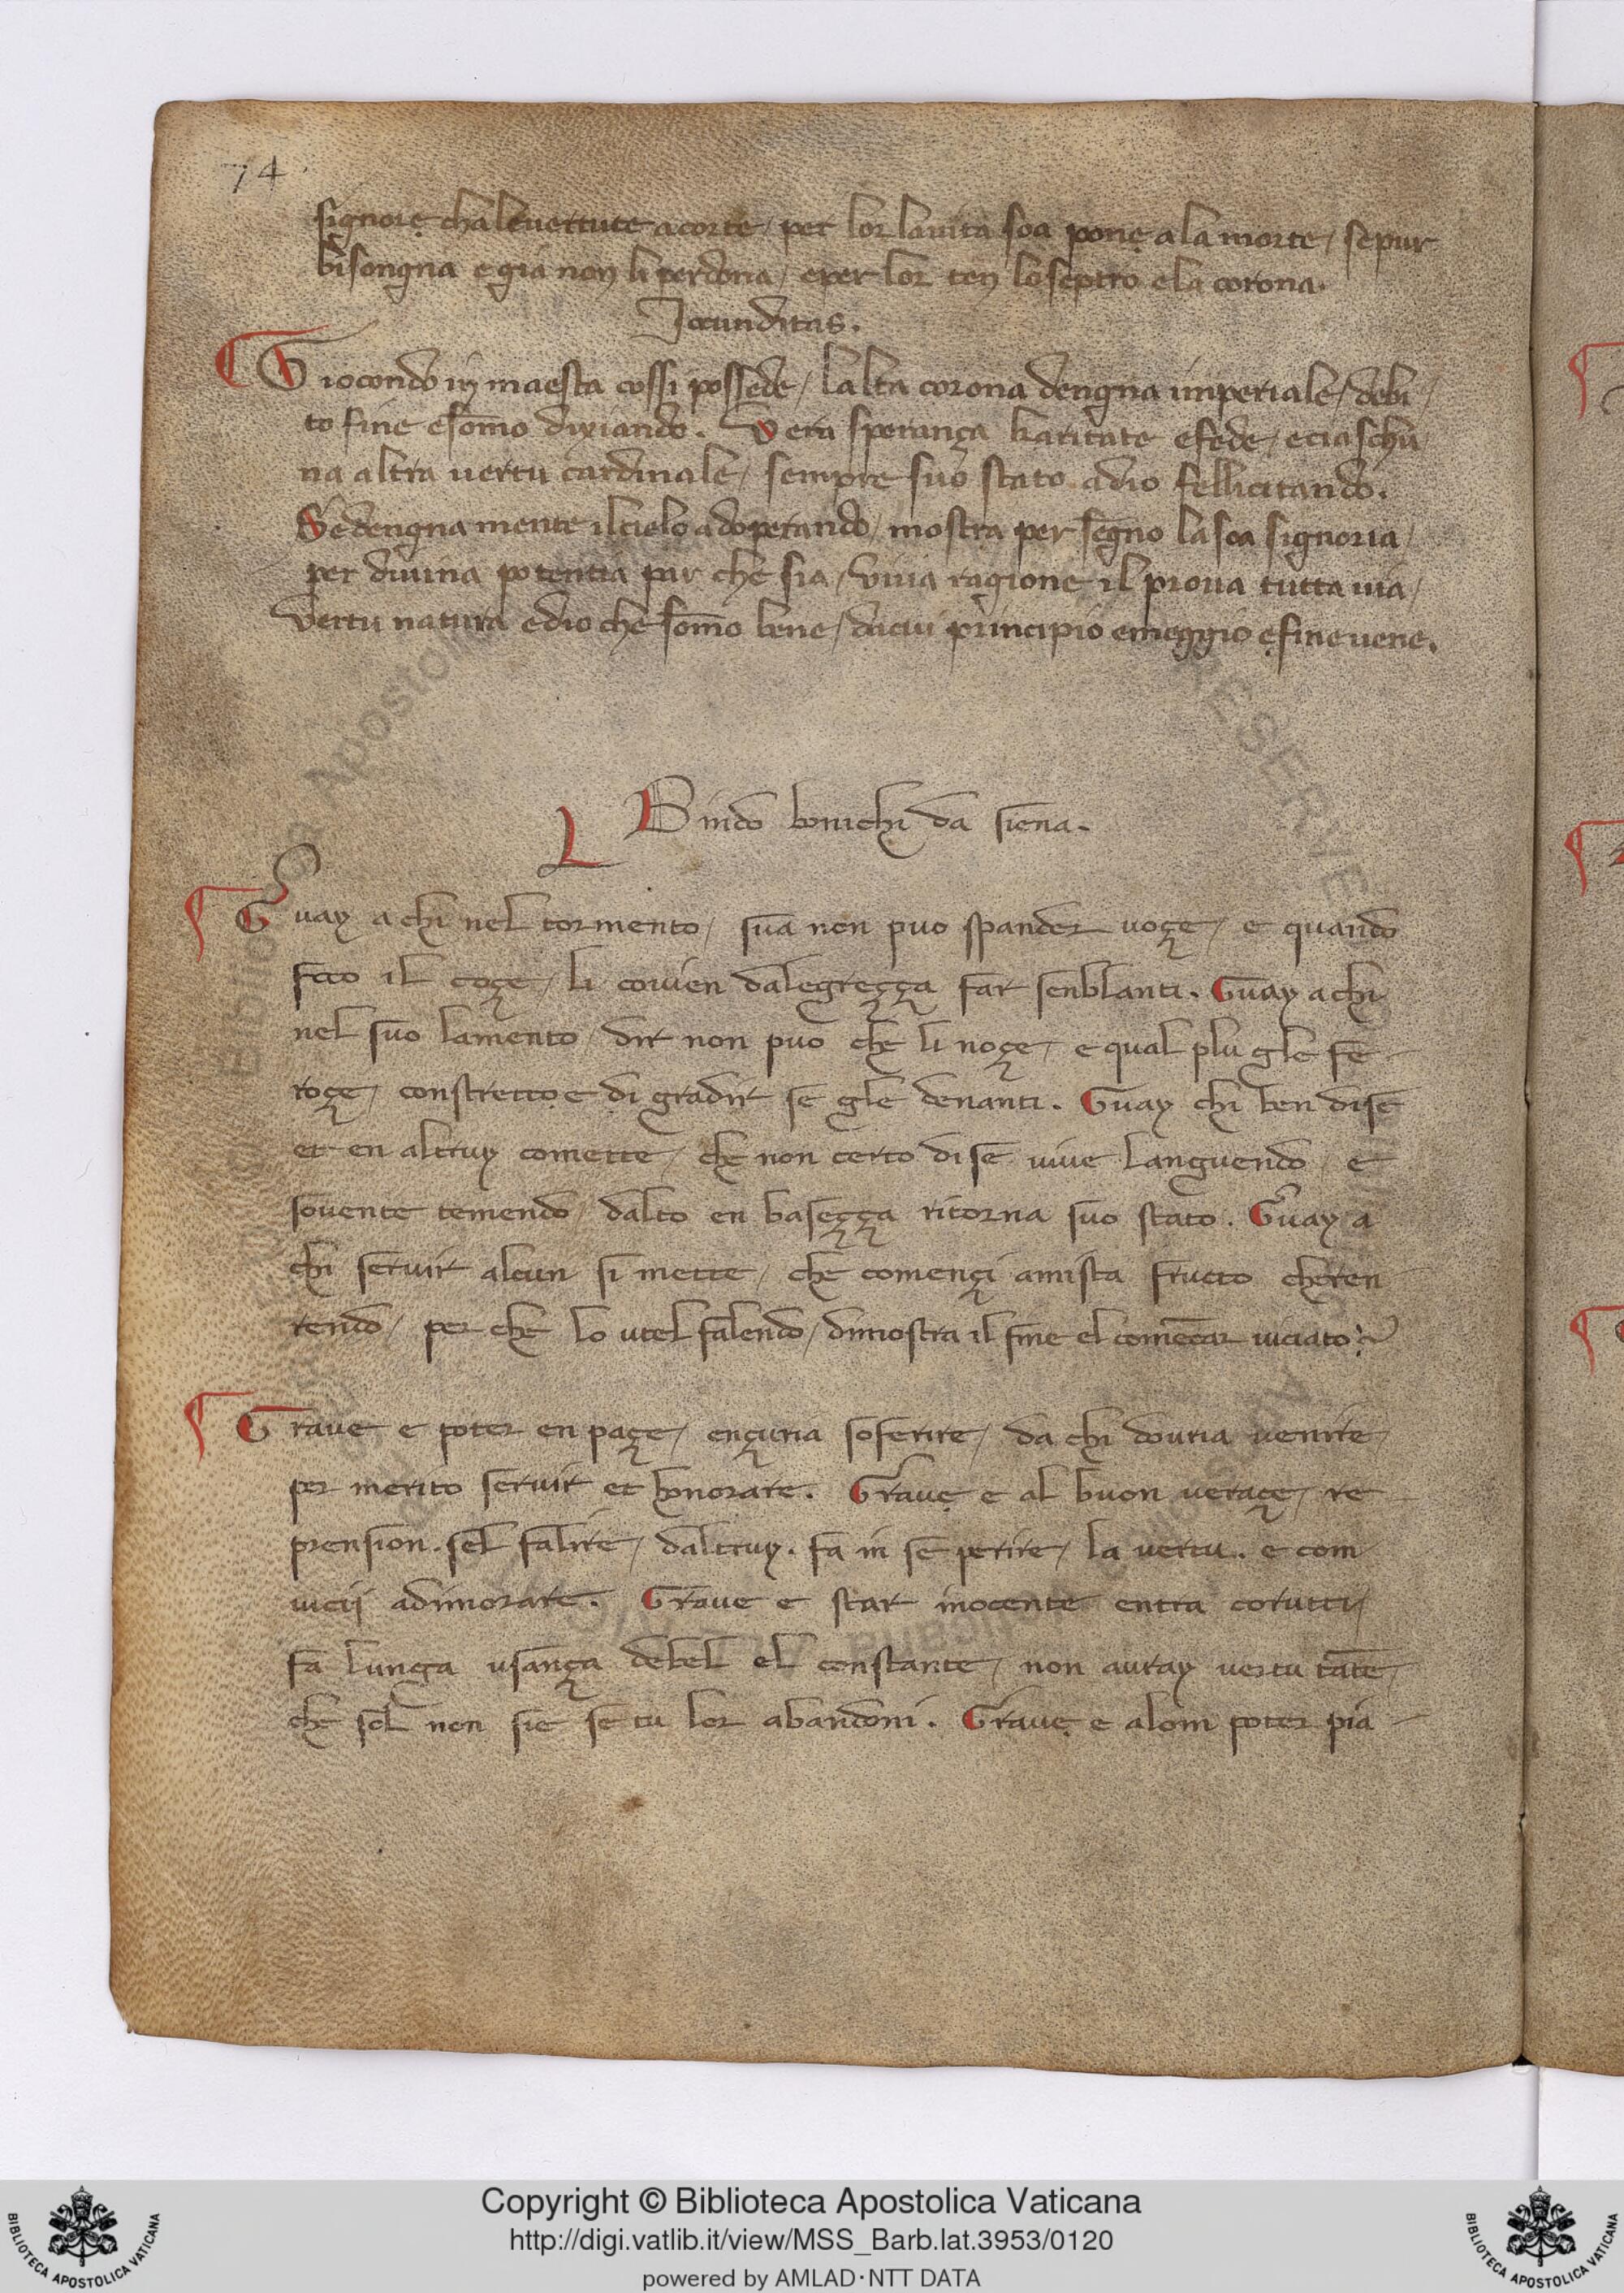 74
signore chaleuertute acorte / per lor lauita soa pone ala morte / sepur
bisongna egia non li perdona / eper lor ten loseptro ela corona.
Jocunditas.
Giocondo in maesta cossi possede / lalta corona dengna imperiale / debi /
to fine esomo dixiando. Vera sperança karitate efede / eciaschu /
na altra uertu cardinale / sempre suo stato adio fellicitando.
Sedengna mente ilcielo adoperando / mostra per segno lasoa signoria /
per diuina potentia par che sia / viua ragione il proua tutta uia /
Vertu natura edio che somo bene / dacui principio emeggio efine uene.
L Bindo bonichi da siena.
Guay a chi nel tormento / sua non puo spander uoçe / e quando
foco il coçe / li couien dalegreçça far senblanti. Guay a chi
nel suo lamento / dir non puo che li noçe / e qual plu gle fe
roçe / constretto e di gradir se gle denanti. Guay chi ben di se
et en altruy comette / che non certo di se uiue languendo / e
souente temendo / dalto en baseçça ritorna suo stato. Guay a
chi seruir alcun si mette / che començi amista fructo cheren
rendo / per che lo utel falendo / dimostra il fine el comēcar uiciato.
Graue e poter en paçe /ençuria soferire / da chi douria uenire /
per merito seruir et honorare. Graue e al buon ueraçe / re
prension. sel falire / daltruy. fa in se perire / la uertu. e com
uicij adimorare. Graue e star inocente entra corutti /
fa lunga usança debel el constante / non auray uertu tāte /
che sol non sie se tu lor abandoni. Graue e alom poter pia
BIBLIOTECA APOSTOLICA VATICANA
Copyright © Biblioteca Apostolica Vaticana
http://digi.vatlib.it/view/MSS_Barb.lat.3953/0120
powered by AMLAD·NTT DATA
BIBLIOTECA APOSTOLICA VATICANA